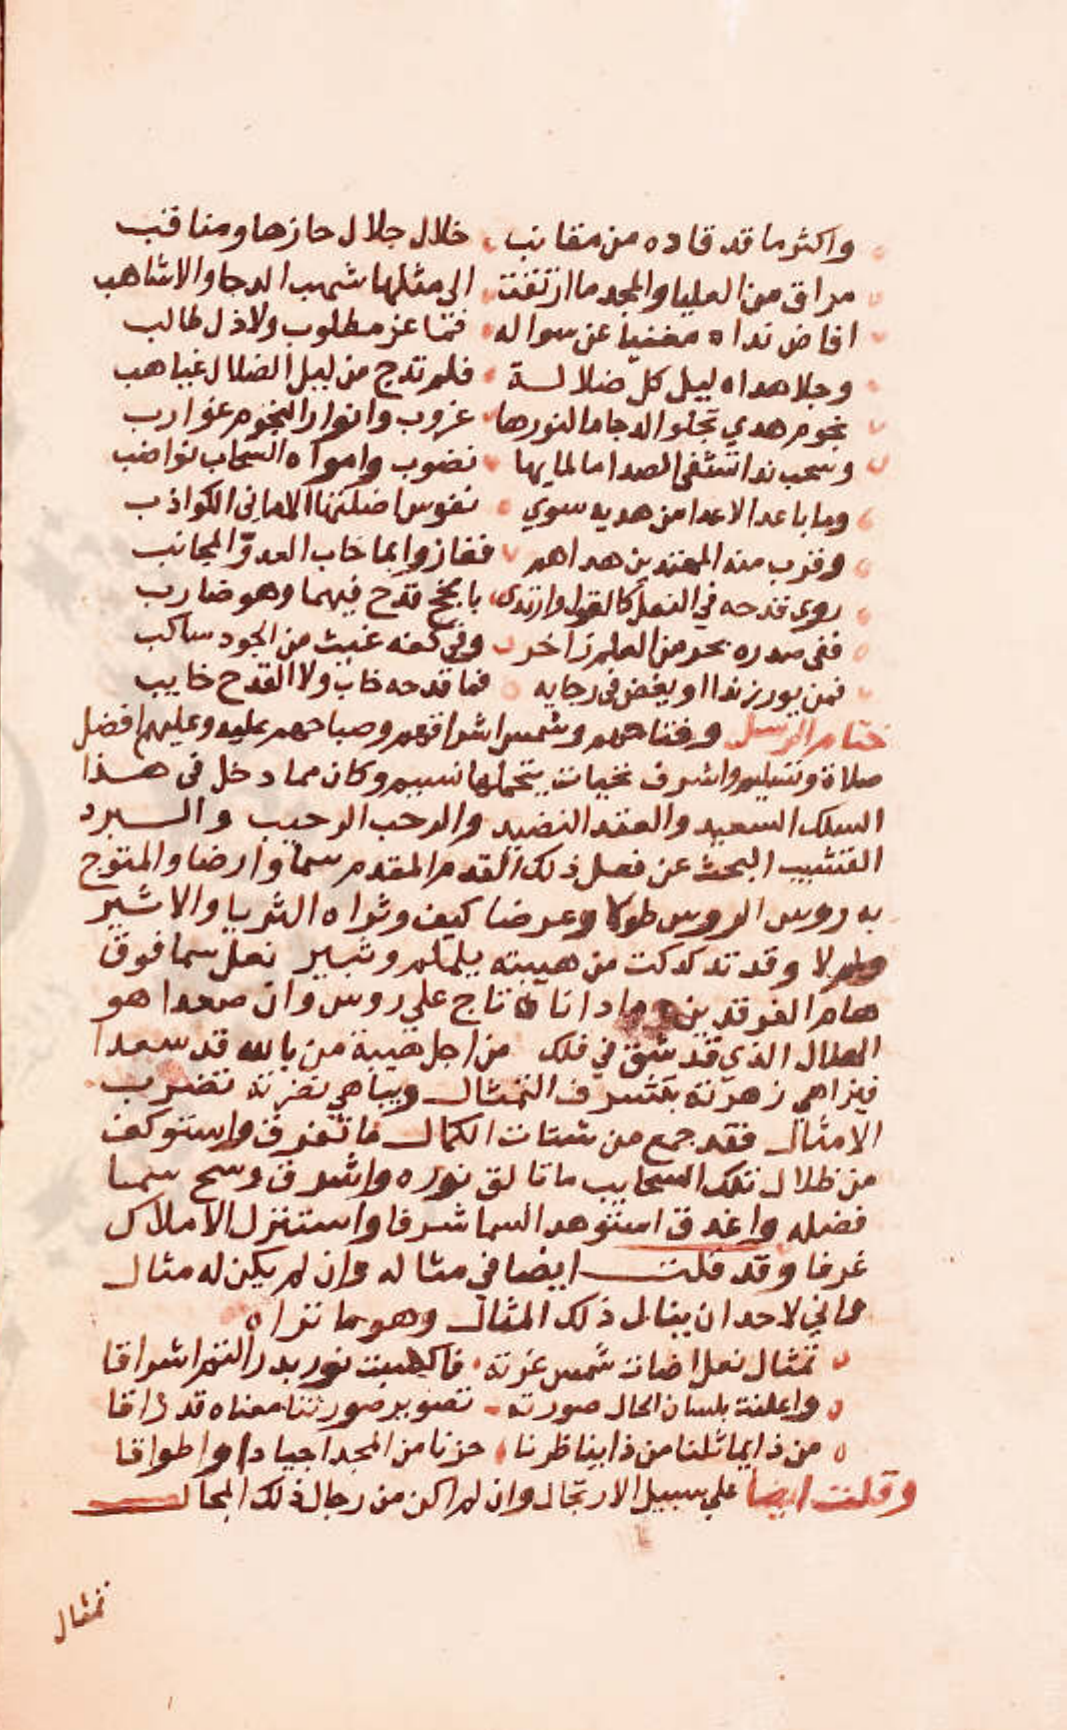 واكثر ما قد قاده من مقانب خلال جلال حازها ومناقب
مراق من العليا والمجد ما ارتقت الى مثلها شهب الدجا والاشاهب
افاض نداه مغنيا عن سواله فما عز مطلوب ولا ذل طالب
وجلا هداه ليل كل ضلالة فلم تدج من ليل الضلال غياهب
نجوم هدي تجلو الدجا ما لنورها غروب وانوار النجوم غوارب
وسحب ندا تشفى الصدا ما لمايها نضوب وامواه السحاب نواضب
وما باعد الاعدا من هديه سوي نفوس اضلتها الاماني الكواذب
وقرب منه المهتدين هداهم ففازوا بما خاب العدو المجانب
روى قدحه في النعل كالقول وارتدى بانجح قدح فيهما وهو ضارب
ففى صدره بحر من العلم زاخر وفى كفه غيث من الجود ساكب
فمن يور زندا او يفض فى رجايه فما قدحه خاب ولا القدح خايب
ختام الرسل وفتاحهم وشمس اشراقهم وصباحهم عليه وعليهم افضل
صلاة وتسليم واشرف تحيات يتحملها نسيم وكان مما دخل فى هذا
السلك السعيد والعقد النضيد والرحب الرحيب والبرد
القشيب البحث عن فعل ذلك القدم المقدم سما وارضا والمتوج
به روس الروس طولا وعرضا كيف وثراه الثريا والاثير
ولم لا وقد تدكدكت من هيبته يلملم وثبير نعل سما فوق
هام الفرقدين تاج علي روس وان صعدا هو
الهلال الذى قد شق في فلك من اجل هيبة من بالله قد سعدا
فيزاهي زهرته بتشرف التمثال ويباهي نضرته تضرب
الامثال فقد جمع من شتات الكمال ما تفرق واستوكف
من ظلال تلك السحايب ما تالق نوره واشرق وسح سما
فضله واغدق استوهد السما شرفا واستنزل الاملاك
غرفا وقد قلت ايضا في مثاله وان لم يكن له مثال
واني لاحد ان ينال ذلك المثال وهو ما تراه
تمثال نعل اضات شمس غرته فاكسبت نور بدر التم اشراقا
واعلنت بلسان الحال صورته تصوير صورتنا معناه قد راقا
من ذا يماثلنا من ذا يناظرنا حزنا من المجد اجيادا واطواقا
وقلت ايضا علي سبيل الارتجال وان لم اكن من رجال ذلك المجال
تمثال